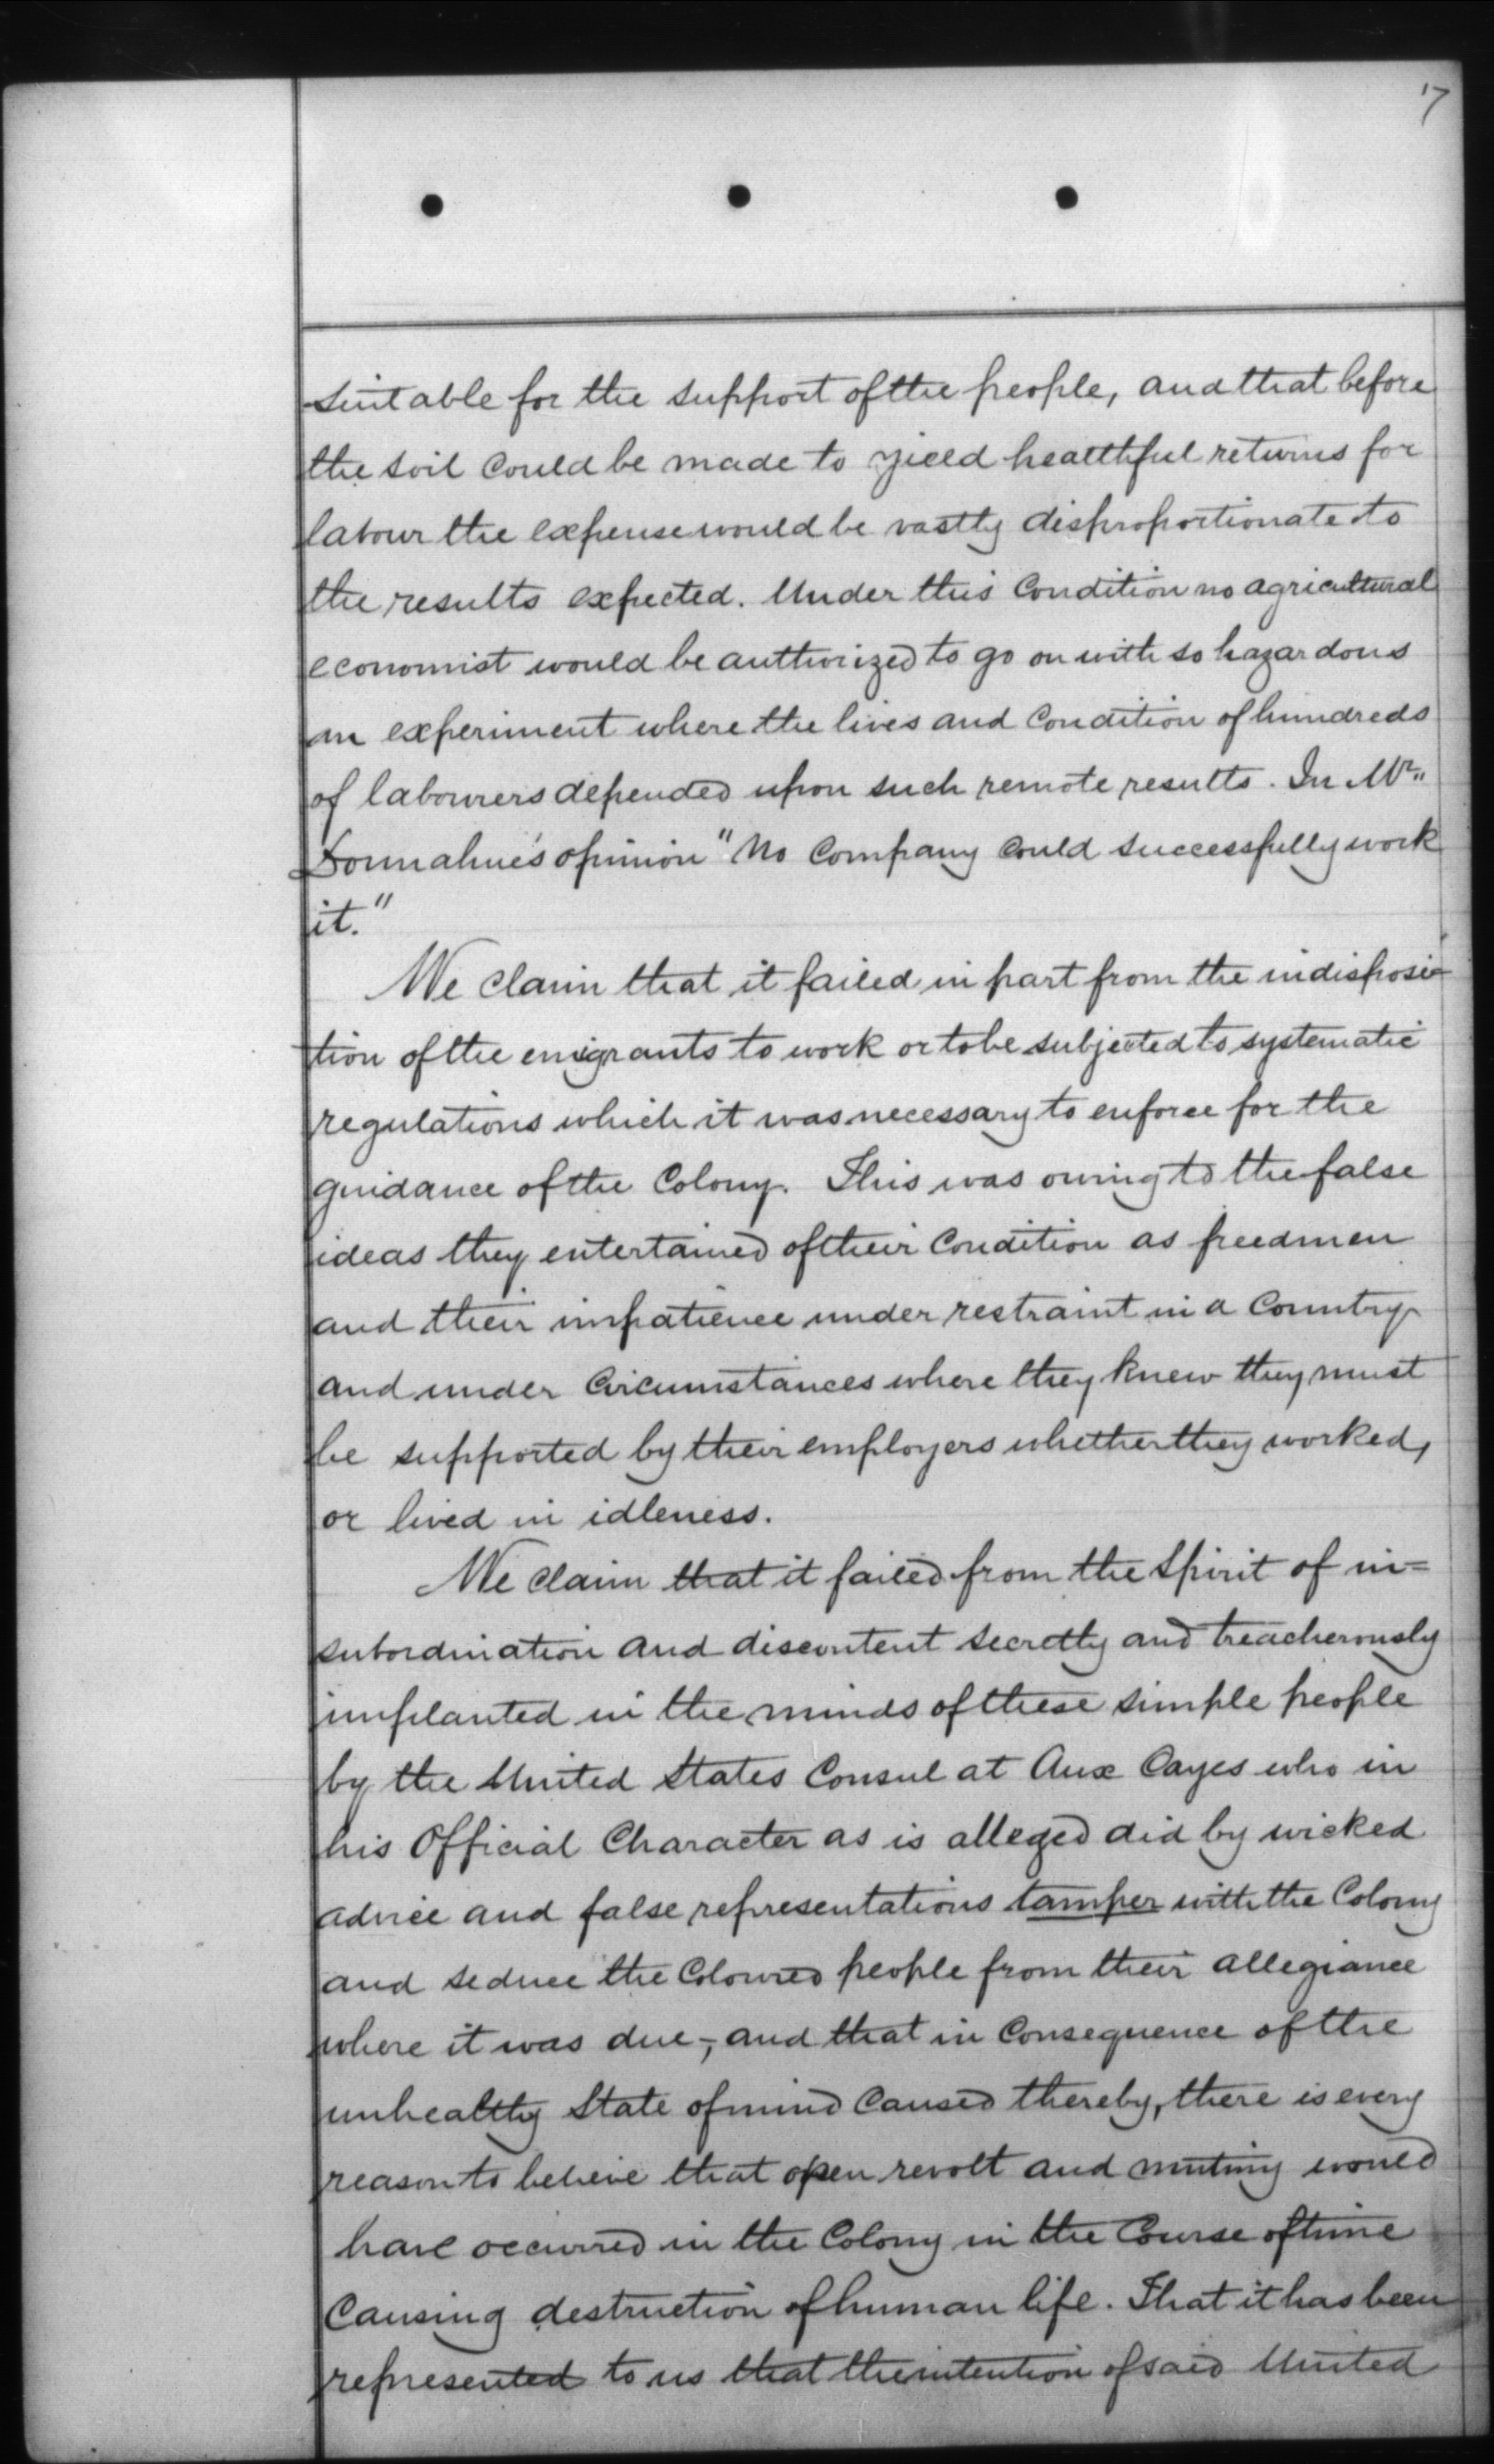 17
suitable for the support of the people, and that before
the soil could be made to yield healthful returns for
labour the expense would be vastly disproportionate to
the results expected. Under this Condition no agricultural
economist would be authorized to go on with so hazardous
an experiment where the lives and Condition of hundreds
of labourers depended upon such remote results. In Mr"
Donnahue's opinion "No Company Could successfully work
it."
We Claim that it failed in part from the indisposi-
tion of the emigrants to work or to be subjected to systematic
regulations which it was necessary to enforce for the
guidance of the Colony. This was owing to the false
ideas they entertained of their Condition as freedmen
and their impatience under restraint in a Country
and under Circumstances where they knew they must
be supported by their employers whether they worked,
or lived in idleness.
We Claim that it failed from the Spirit of in=
subordination and discontent secretly and treacherously
implanted in the minds of these simple people
by the United States Consul at Aux Cayes who in
his Official Character as is alleged did by wicked
advice and false representations tamper with the Colony
and seduce the Coloured people from their allegiance
where it was due; and that in Consequence of the
unhealthy State of mind Caused thereby, there is every
reason to believe that open revolt and mutiny would
have occurred in the Colony in the Course of time
Causing destruction of human life. That it has been
represented to us that the intention of said United